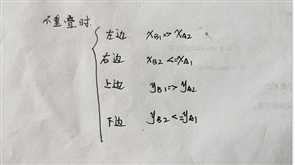 不重叠时
左边 x_B1 => x_A2
右边 x_B2 <= x_A1
上边 y_B1 => y_A2
下边 y_B2 <= y_A1